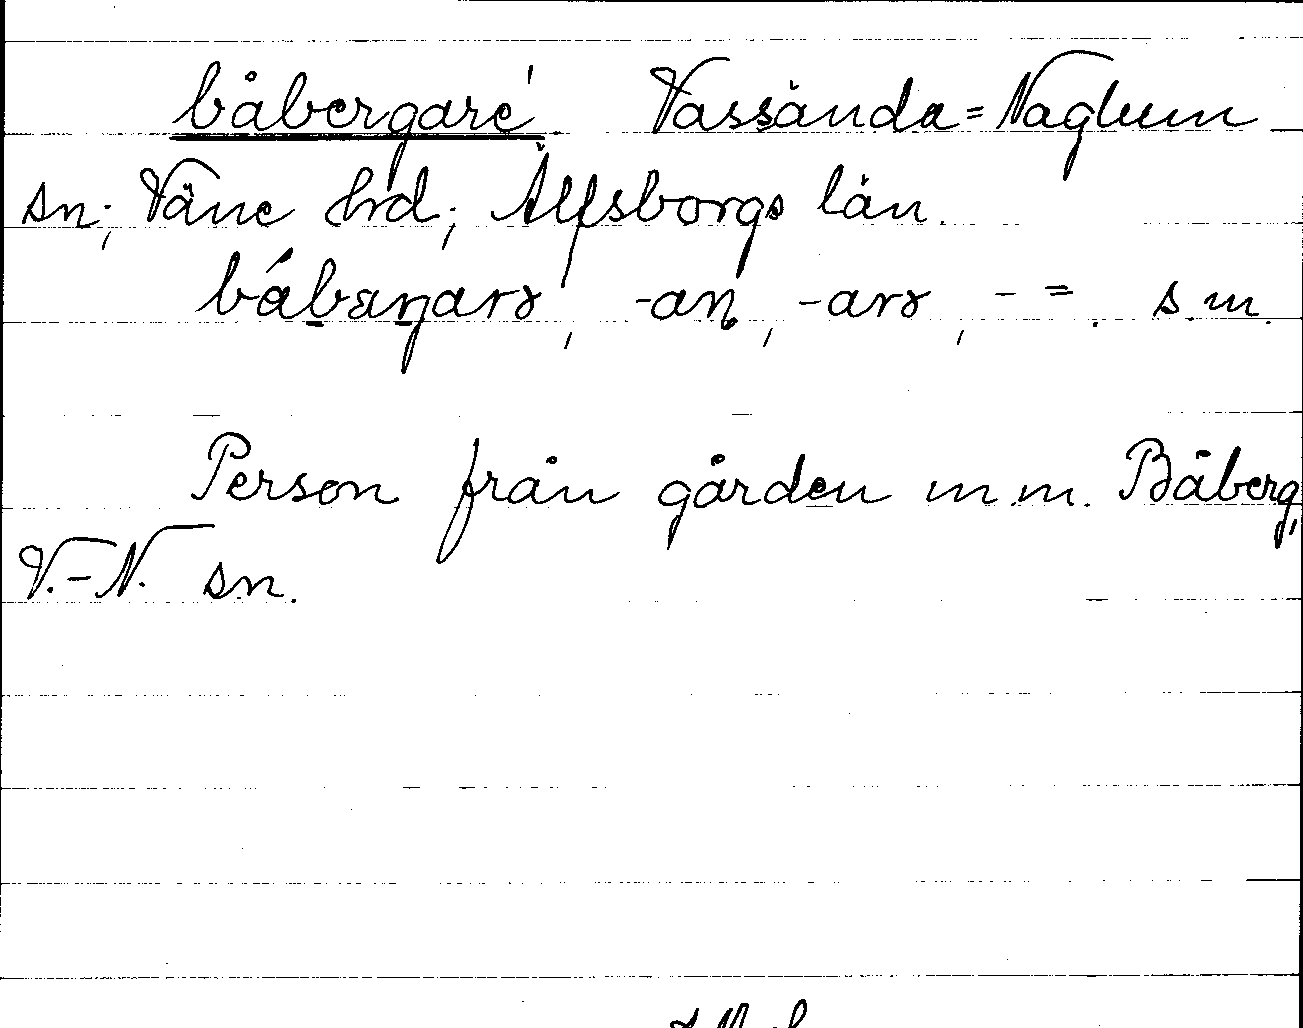 båbergare Vassända-Naglum
sn; Väne hrd; Älfsborgs län.
-an, -arə, - =. s.m.
Person från gården m.m. Båberg,
V.-N. sn.